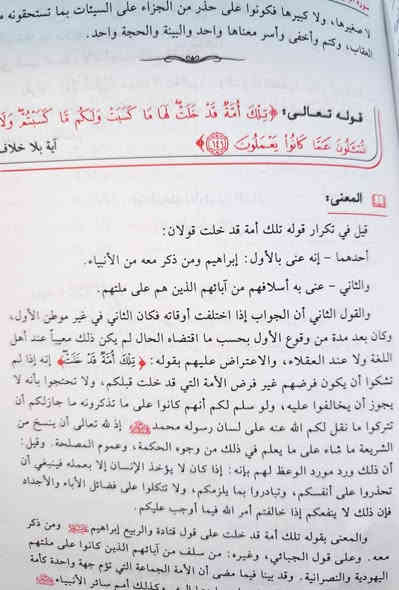 لا صغيرها، ولا كبيرها فكونوا على حذر من الجزاء على السيئات بما تستحقونه
العقاب، وكتم وأخفى وأسر معناها واحد والبينة والحجة واحد.
قوله تعالى: ﴿تِلْكَ أُمَّةٌ قَدْ خَلَتْ لَهَا مَا كَسَبَتْ وَلَكُم مَّا كَسَبْتُمْ وَلَا
تُسْـَٔلُونَ عَمَّا كَانُوا۟ يَعْمَلُونَ ﴿١٤١﴾﴾ آية بلا خلاف
المعنى:
قيل في تكرار قوله تلك أمة قد خلت قولان:
أحدهما – إنه عنى بالأول: إبراهيم ومن ذكر معه من الأنبياء.
والثاني – عنى به أسلافهم من آبائهم الذين هم على ملتهم.
والقول الثاني أن الجواب إذا اختلفت أوقاته فكان الثاني في غير موطن الأول،
وكان بعد مدة من وقوع الأول بحسب ما اقتضاه الحال لم يكن ذلك معيباً عند أهل
اللغة ولا عند العقلاء، والاعتراض عليهم بقوله: ﴿تِلْكَ أُمَّةٌ قَدْ خَلَتْ﴾ إنه إذا لم
تشكوا أن يكون فرضهم غير فرض الأمة التي قد خلت قبلكم، ولا تحتجوا بأنه لا
يجوز أن يخالفوا عليه، ولو سلم لكم أنهم كانوا على ما تذكرونه ما جاز لكم أن
تتركوا ما نقل لكم الله عنه على لسان رسوله محمد ﷺ إذ لله تعالى أن ينسخ من
الشريعة ما شاء على ما يعلم في ذلك من وجوه الحكمة، وعموم المصلحة. وقيل:
أن ذلك ورد مورد الوعظ لهم بإنه: إذا كان لا يؤخذ الإنسان إلا بعمله فينبغي أن
تحذروا على أنفسكم، وتبادروا بما يلزمكم، ولا تتكلوا على فضائل الآباء والأجداد
فإن ذلك لا ينفعكم إذا خالفتم أمر الله فيما أوجب عليكم.
والمعنى بقوله تلك أمة قد خلت على قول قتادة والربيع إبراهيم ومن ذكر
معه. وعلى قول الجبائي، وغيره: من سلف من آبائهم الذين كانوا على ملتهم
اليهودية والنصرانية. وقد بينا فيما مضى أن الأمة الجماعة التي تؤم جهة واحدة كأمة
وكذلك أمم سائر الأنبياء